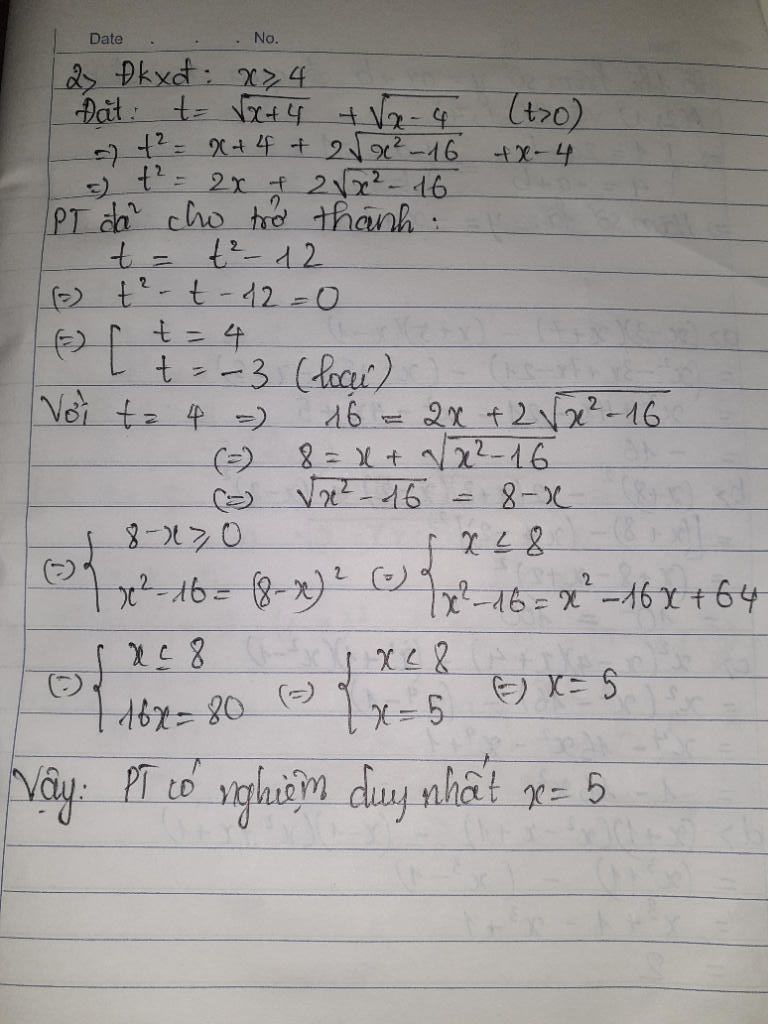 Date . . . No.
2> Đkxđ: x ≥ 4
Đặt: t = √(x+4) + √(x-4) (t>0)
=> t² = x+4 + 2√(x²-16) +x-4
=> t² = 2x + 2√(x²-16)
PT đã cho trở thành:
t = t²-12
(=) t² - t - 12 = 0
(=) [ t = 4
t = -3 (loại)
Với t = 4 => 16 = 2x + 2√(x²-16)
(=) 8 = x + √(x²-16)
(=) √(x²-16) = 8-x
(=) { 8-x ≥ 0 (=) { x ≤ 8
x²-16 = (8-x)² x²-16 = x²-16x+64
(=) { x ≤ 8 (=) { x ≤ 8 (=) x = 5
16x = 80 x = 5
Vậy: PT có nghiệm duy nhất x = 5